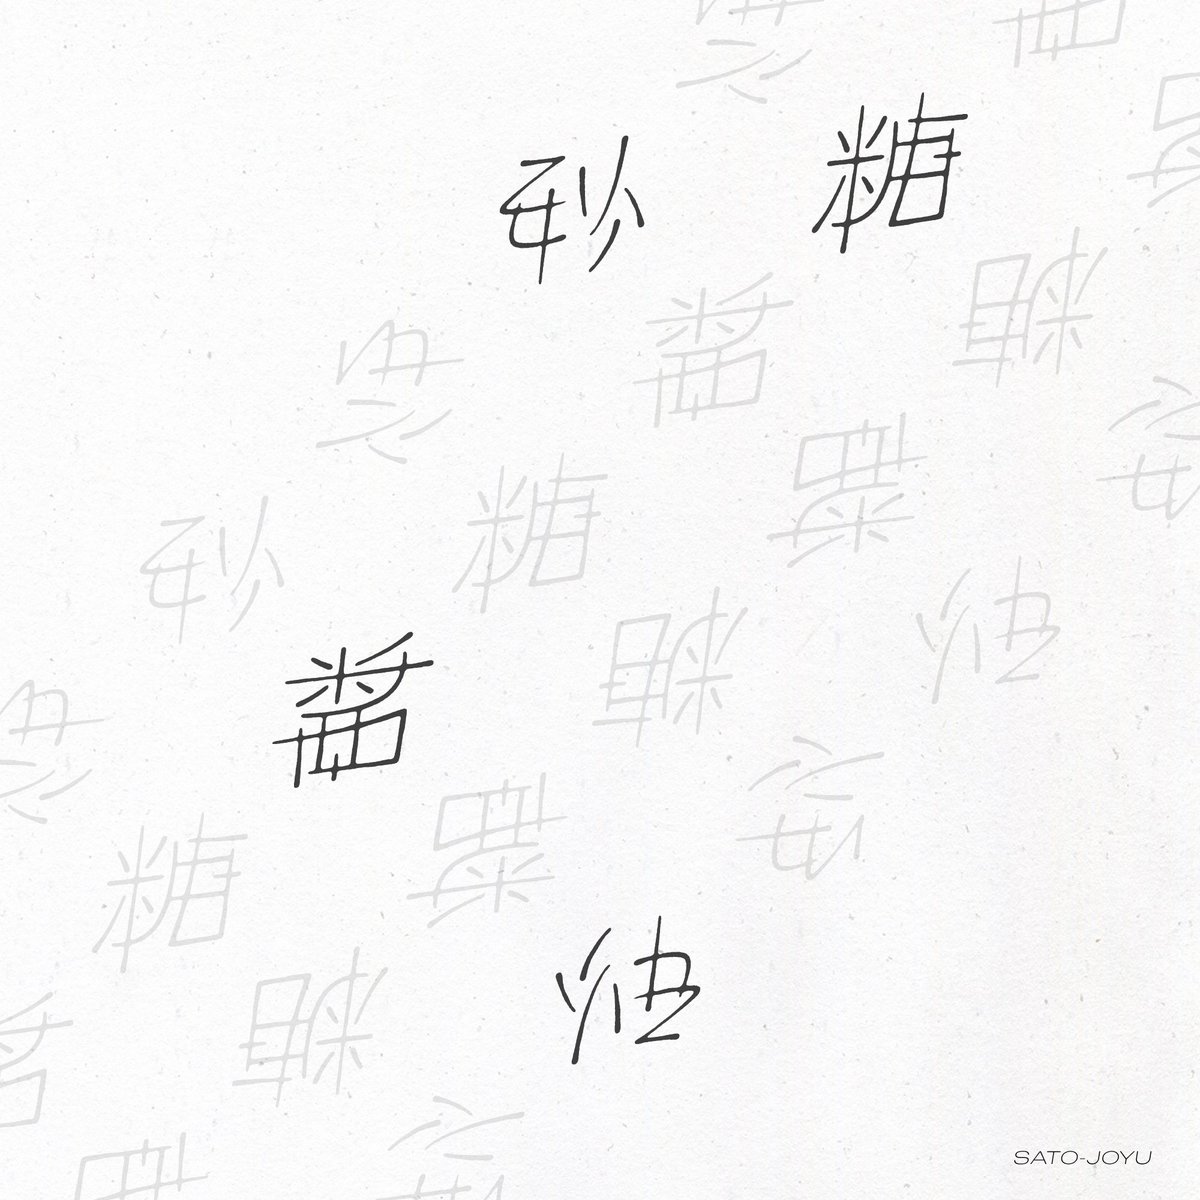 砂糖
醤油
SATO-JOYU